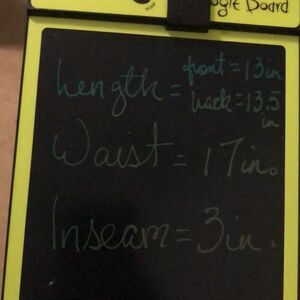 ogie Board
Length = front = 13in
back = 13.5
in
Waist = 17in.
Inseam = 3in.